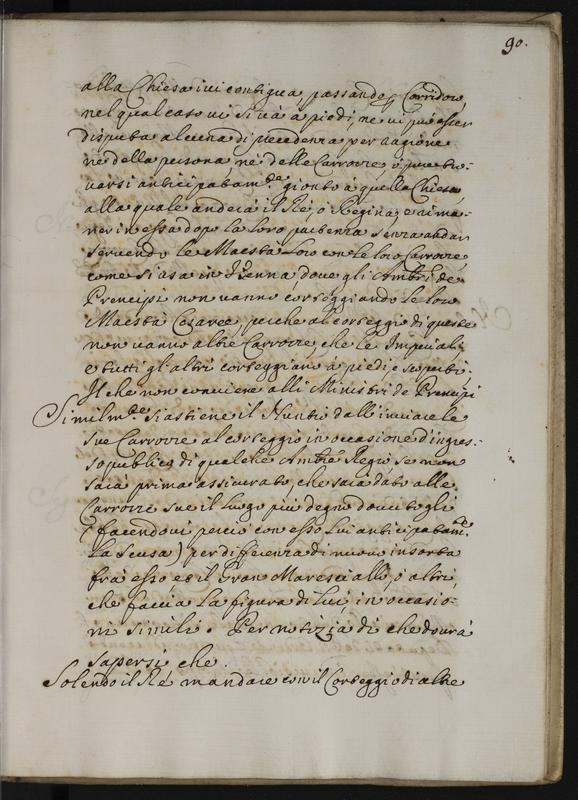 90.
alla Chiesa ivi contigua, passando p Corridori,
nel qual caso vi si và à piedi, ne vi può esser
disputa alcuna di precedenza per ragione
ne della persona, ne delle Carrozze, ò pur tro-
varsi anticipatam.te gionto à quella Chiesa,
alla quale anderà il Rè, ò Regina, e rima-
ner in essa dopo la loro partenza senza andar
servendo le Maestà Loro con le loro Carrozze,
come si usa in Vienna, dove gli Ambri de
Prencipi non vanno corteggiando le loro
Maestà Cesaree, perche al corteggio di queste
non vanno altre Carrozze, che le Imperiali,
e tutti gl'altri corteggiano à piedi, e scoperti.
Il che non conviene alli Ministri de Prencipi
Similm.te si astiene il Nuntio dall'inviar le
sue Carrozze al corteggio in occasione d'ingres-
so publico di qualche Ambre Regio se non
sarà prima assicurato, che sarà dato alle
Carrozze sue il luogo più degno dovutogli
(facendovi perciò con esso lui anticipatam.te
la scusa) per differenza di nuovo insorta
frà esso et il Gran Maresciallo, ò altri,
che faccia la figura di lui, in occasio-
ni simili. Per notizia di che dourà
sapersi che.
Solendo il Rè mandare con il Corteggio di altre